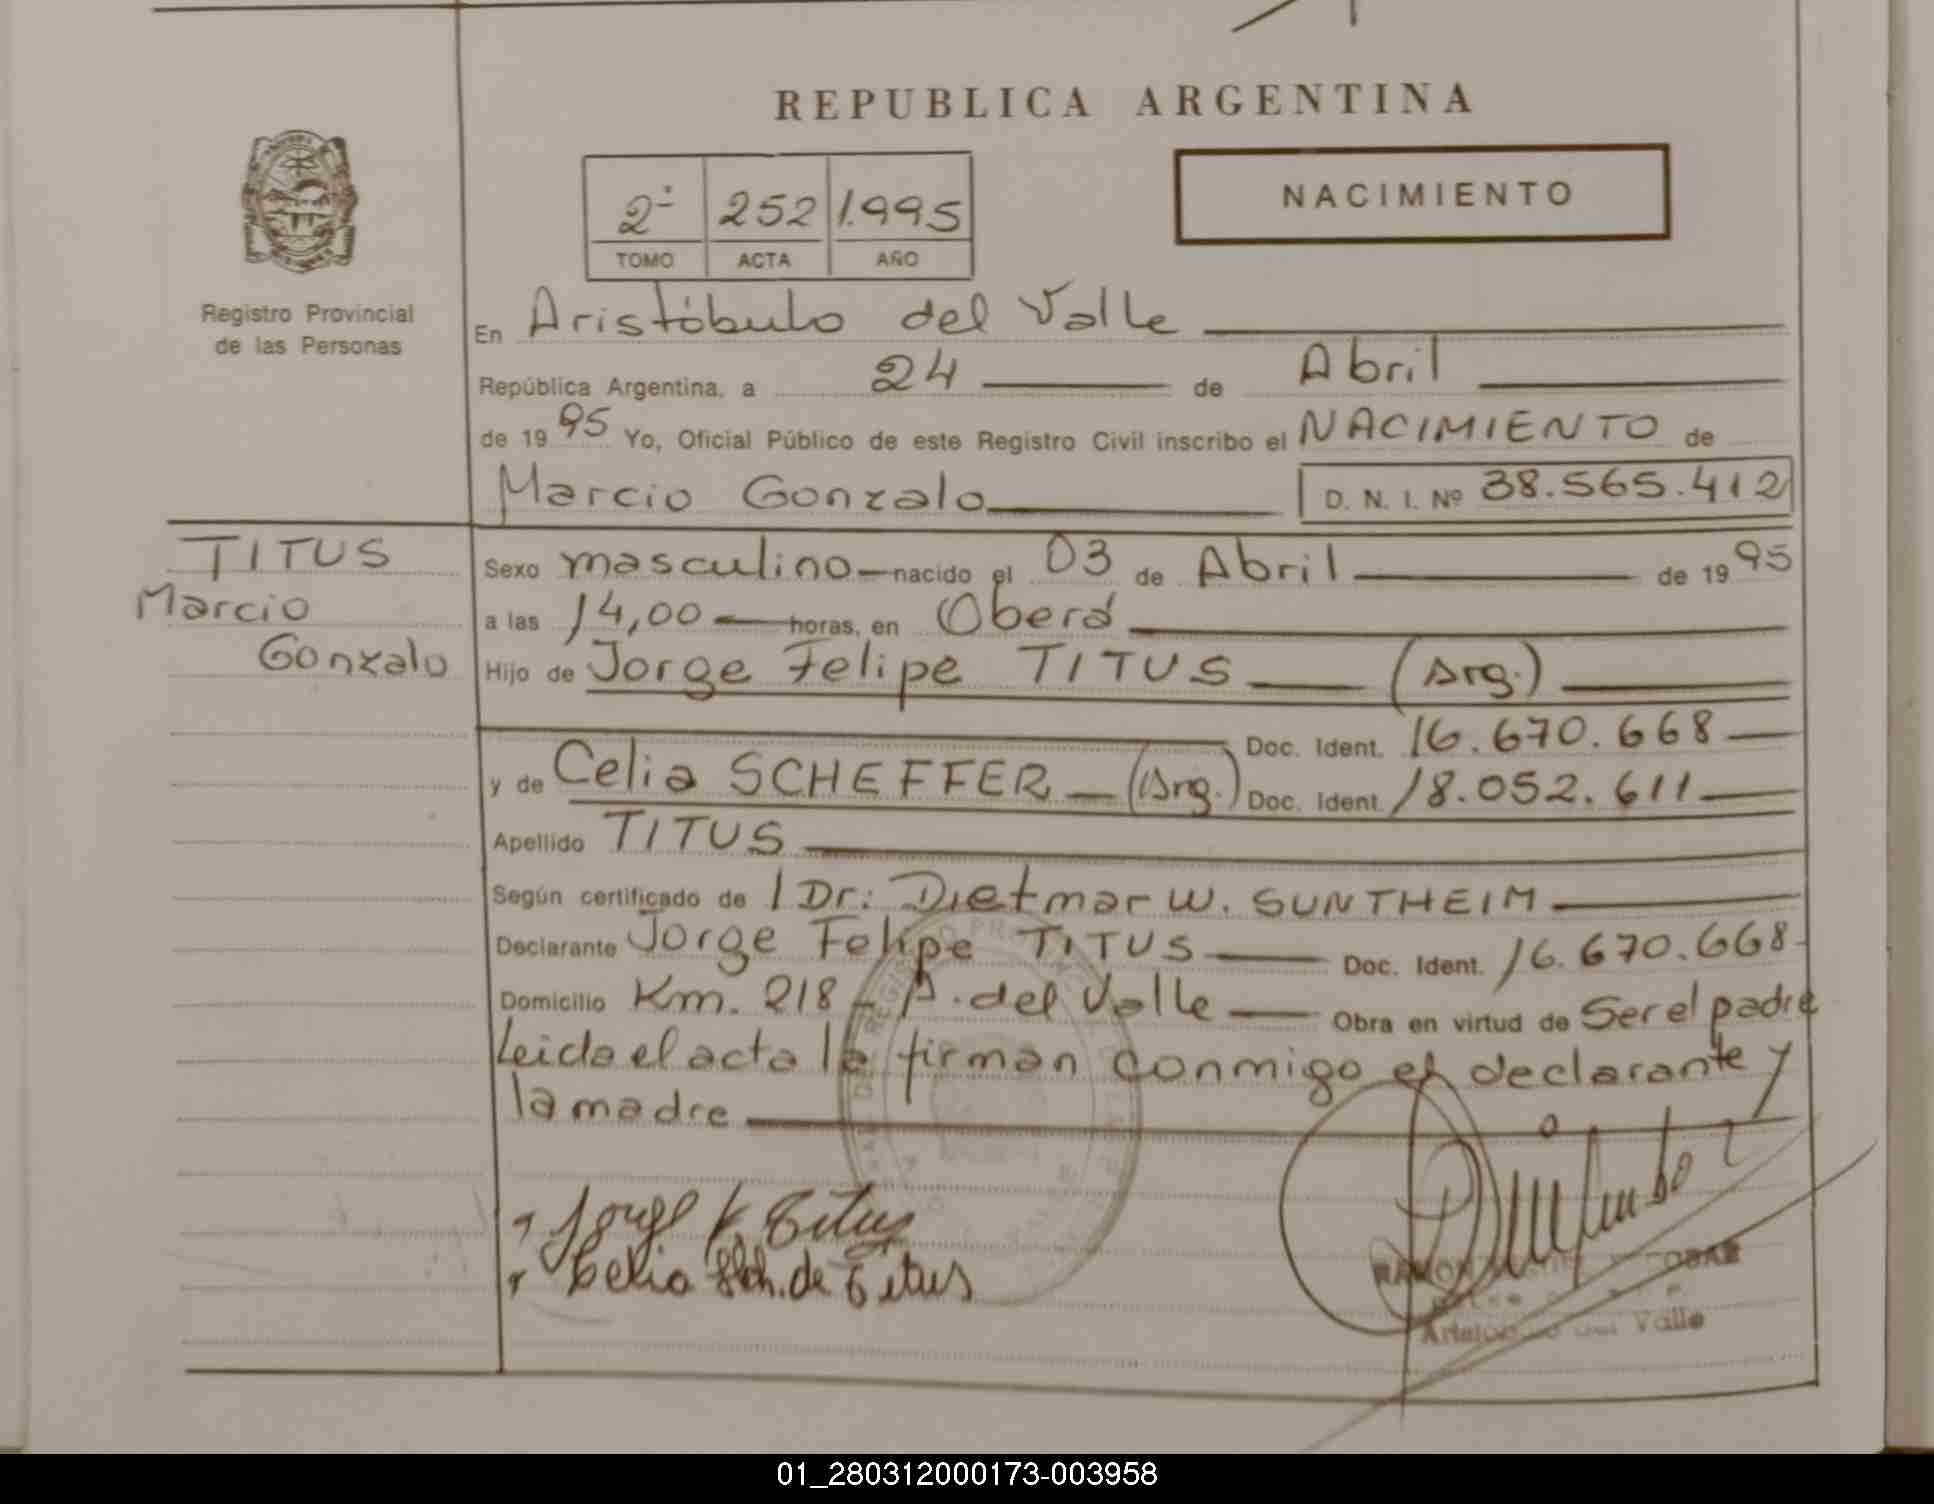 REPUBLICA ARGENTINA
2º 252 1.995
TOMO ACTA AÑO
NACIMIENTO
Registro Provincial
de las Personas
En Aristóbulo del Valle
República Argentina, a 24 de Abril
de 1995 Yo, Oficial Público de este Registro Civil inscribo el NACIMIENTO de
Marcio Gonzalo D. N. I. Nº 38.565.412
TITUS
Marcio
Gonzalo
Sexo masculino nacido el 03 de Abril de 1995
a las 14,00 horas, en Oberá
Hijo de Jorge Felipe TITUS (Arg.)
Doc. Ident. 16.670.668
y de Celia SCHEFFER (Arg.) Doc. Ident. 18.052.611
Apellido TITUS
Según certificado de l Dr: Dietmar W. SUNTHEIM
Declarante Jorge Felipe TITUS Doc. Ident. 16.670.668
Domicilio Km. 218 - A. del Valle Obra en virtud de Ser el padre
Leida el acta la firman conmigo el declarante y
la madre
Jorge F. Titus
Celia Sch. de Titus
RAMON
Valle
01_280312000173-003958